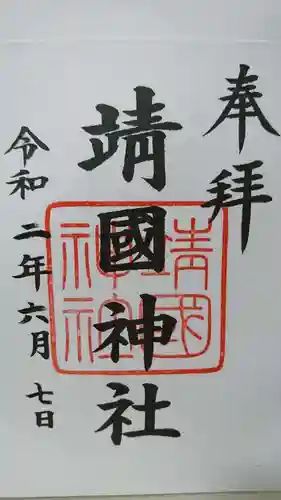 奉拝
靖國神社
令和二年六月七日
靖國
神社